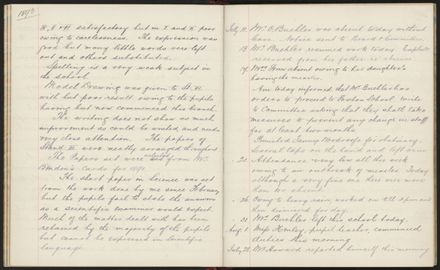 1893
satisfactory but in I and II poor
owing to carelessness. The expression was
good but many little words were left
out and others substituted.
Spelling is a very weak subject in
the school.
Model Drawing was given to St. VI
with but poor result owing to the pupils
having but now commenced this branch.
The writing does not show as much
improvement as could be wished and needs
very close attention. The papers of
Stand. III were neatly arranged throughout
The Papers set were selected from Mr.
Cards for 1892
The short paper in Science was set
from the work done by me since February
but the pupils fail to state the answers
as a scientific examiner would expect.
Much of the matter dealt with has been
retained by the majority of the pupils
but cannot be expressed in scientific
language.
July 11. Mr. Buehler was absent today without
leave. Notice sent to Board & Committee
13. Mr. Buehler resumed work today. Explanation
received from his father re absence
19. Mrs. absent owing to her daughter's
having the measles.
Am today informed that Mr. Buehler has
orders to proceed to School. Wrote
to Committee asking that they shall take
measures to prevent any change in staff
for at least two months
21. Attendance very low all this week
owing to an outbreak of measles. Today
although a very fine one there were more
than absent.
26. Owing to heavy rain, worked on till 1 pm and
then dismissed for day
31. Mr. Buehler left this school today.
Aug. 1. Miss Henley, pupil teacher, commenced
duties this morning
July 28. Mr. Howard reported himself this morning